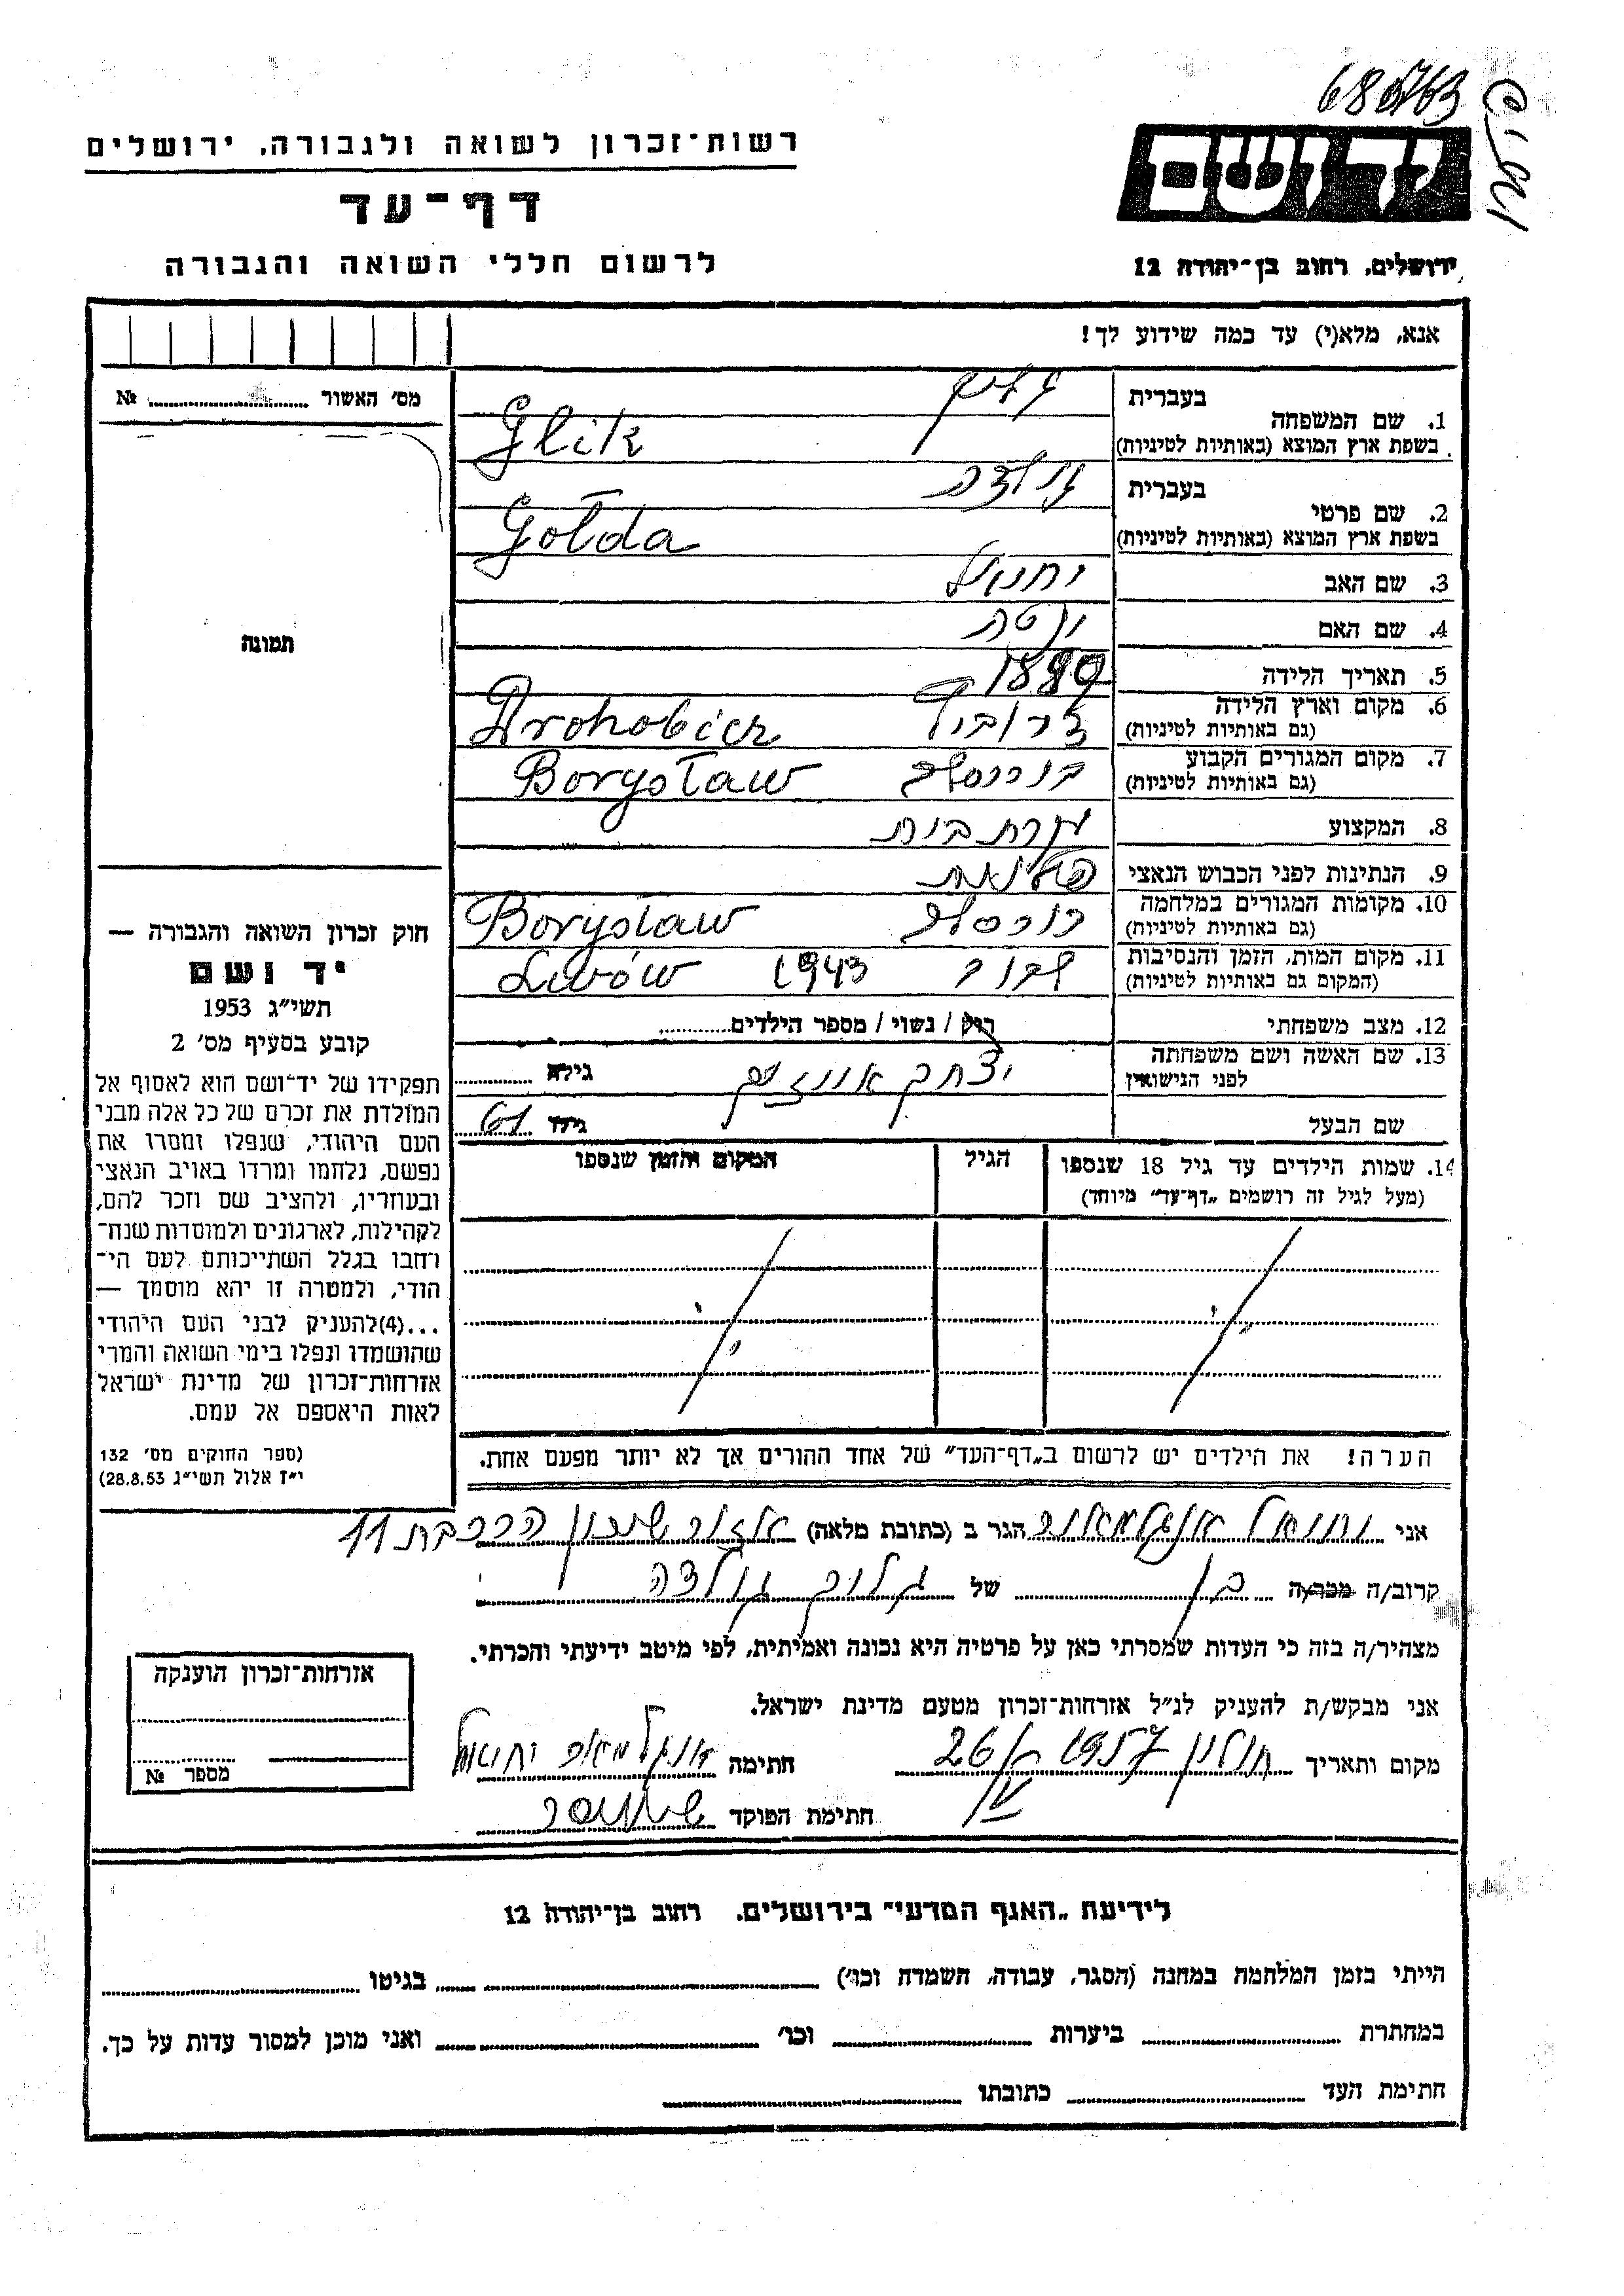 680763
רשות־זכרון לשואה ולגבורה, ירושלים
דף־עד
לרשום חללי השואה והגבורה
יד ושם
ירושלים, רחוב בן־יהודה 12
אנא, מלא(י) עד כמה שידוע לך!
מס׳ האשור № 
1. שם המשפחה
בעברית גליק
בשפת ארץ המוצא (באותיות לטיניות) Glik
2. שם פרטי
בעברית גולדה
בשפת ארץ המוצא (באותיות לטיניות) Gołda
3. שם האב
4. שם האם
5. תאריך הלידה
6. מקום וארץ הלידה
(גם באותיות לטיניות) Drohobicz
7. מקום המגורים הקבוע
(גם באותיות לטיניות) Borysław
8. המקצוע עקרת בית
9. הנתינות לפני הכבוש הנאצי פולנית
10. מקומות המגורים במלחמה
(גם באותיות לטיניות) Borysław
11. מקום המות, הזמן והנסיבות
(המקום גם באותיות לטיניות) לבוב 1943 Lwów
12. מצב משפחתי רוק / נשוי / מספר הילדים
13. שם האשה ושם משפחתה
לפני הנישואין
גילה
יצחק
שם הבעל
גילו 61
14. שמות הילדים עד גיל 18 שנספו
(מעל לגיל זה רושמים „דף־עד״ מיוחד)
הגיל
המקום והזמן שנספו
הערה! את הילדים יש לרשום ב„דף־העד״ של אחד ההורים אך לא יותר מפעם אחת.
תמונה
חוק זכרון השואה והגבורה —
יד ושם
תשי״ג 1953
קובע בסעיף מס׳ 2
תפקידו של יד־ושם הוא לאסוף אל
המולדת את זכרם של כל אלה מבני
העם היהודי, שנפלו ומסרו את
נפשם, נלחמו ומרדו באויב הנאצי
ובעוזריו, ולהציב שם וזכר להם,
לקהילות, לארגונים ולמוסדות שנח־
רחבו בגלל השתייכותם לעם הי־
הודי, ולמטרה זו יהא מוסמך —
...(4)להעניק לבני העם היהודי
שהושמדו ונפלו בימי השואה והמרי
אזרחות־זכרון של מדינת ישראל
לאות היאספם אל עמם.
(ספר החוקים מס׳ 132
י״ז אלול תשי״ג 28.8.53)
אני הגר ב (כתובת מלאה) אזור שיכון הרכבת 11
קרוב/ה מכר/ה בן של גליק גולדה
מצהיר/ה בזה כי העדות שמסרתי כאן על פרטיה היא נכונה ואמיתית, לפי מיטב ידיעתי והכרתי.
אני מבקש/ת להעניק לנ״ל אזרחות־זכרון מטעם מדינת ישראל.
מקום ותאריך חולון 1957 26/IV חתימה
חתימת הפוקד
אזרחות־זכרון הוענקה
מספר №
לידיעת „האגף המדעי״ בירושלים, רחוב בן־יהודה 12
הייתי בזמן המלחמה במחנה (הסגר, עבודה, השמדה וכו׳) בגיטו
במחתרת ביערות וכו׳ ואני מוכן למסור עדות על כך.
חתימת העד כתובתו